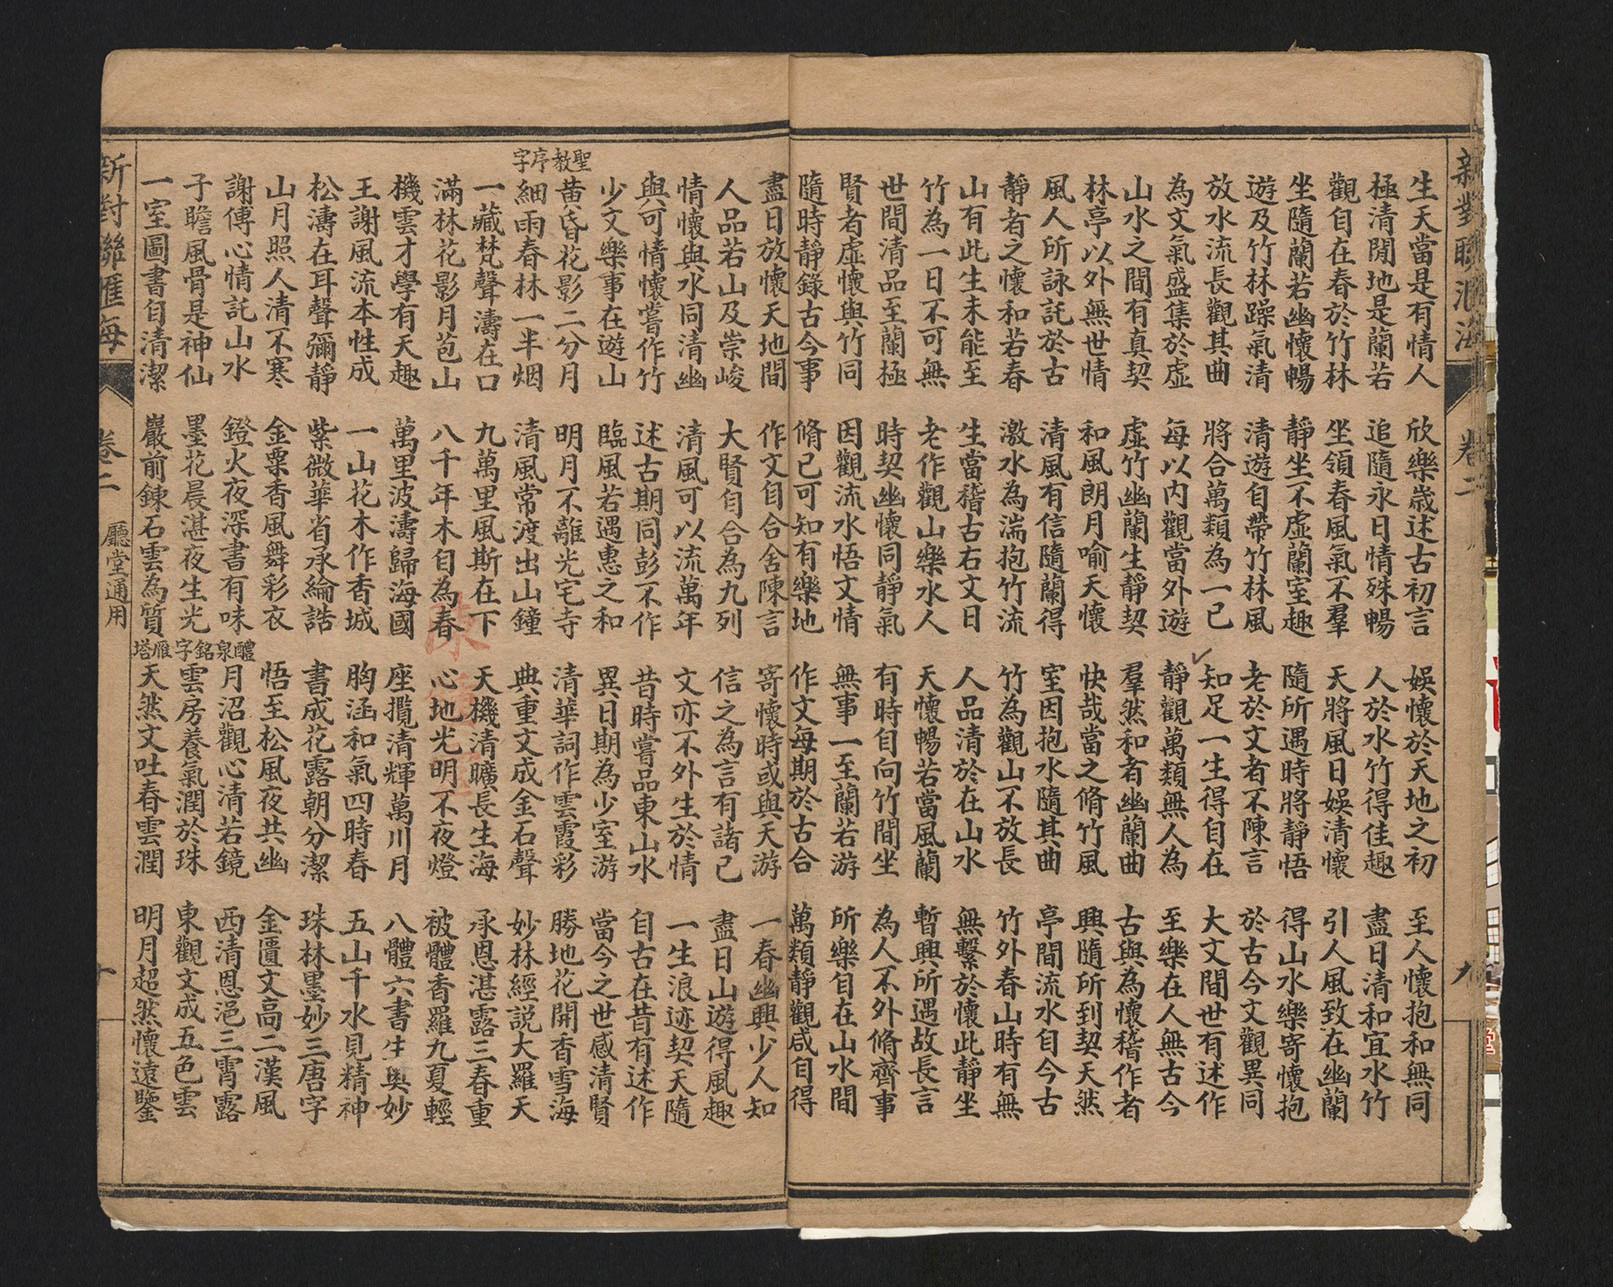 新對聯滙海 卷二 九
生天當是有情人 欣樂歲述古初言 娛懷於天地之初 至人懷抱和無同
極清閒地是蘭若 追隨永日情殊暢 人於水竹得佳趣 盡日清和宜水竹
觀自在春於竹林 坐領春風氣不羣 天將風日娛清懷 引人風致在幽蘭
坐隨蘭若幽懷暢 靜坐不虛蘭室趣 隨所遇時將靜悟 得山水樂寄懷抱
遊及竹林躁氣清 清遊自帶竹林風 老於文者不陳言 於古今文觀異同
放水流長觀其曲 將合萬類為一己 知足一生得自在 大文間世有述作
為文氣盛集於虛 每以內觀當外遊 靜觀萬類無人為 至樂在人無古今
山水之間有真契 虛竹幽蘭生靜契 羣然和者幽蘭曲 古與為懷稽作者
林亭以外無世情 和風朗月喻天懷 快哉當之脩竹風 興隨所到契天然
風人所詠託於古 清風有信隨蘭得 室因抱水隨其曲 亭間流水自今古
靜者之懷和若春 激水為湍抱竹流 竹為觀山不放長 竹外春山時有無
山有此生未能至 生當稽古右文日 人品清於在山水 無繫於懷此靜坐
竹為一日不可無 老作觀山樂水人 天懷暢若當風蘭 暫興所遇故長言
世間清品至蘭極 時契幽懷同靜氣 有時自向竹間坐 為人不外脩齊事
賢者虛懷與竹同 因觀流水悟文情 無事一至蘭若游 所樂自在山水間
隨時靜錄古今事 脩己可知有樂地 作文每期於古合 萬類靜觀咸自得
盡日放懷天地間 作文自合舍陳言 寄懷時或與天游 一春幽興少人知
人品若山及崇峻 大賢自合為九列 信之為言有諸己 盡日山遊得風趣
情懷與水同清幽 清風可以流萬年 文亦不外生於情 一生浪迹契天隨
與可情懷嘗作竹 述古期同彭不作 昔時嘗品東山水 自古在昔有述作
少文樂事在遊山 臨風若遇惠之和 異日期為少室游 當今之世感清賢
聖教序字
黄昏花影二分月 明月不離光宅寺 清華詞作雲霞彩 勝地花開香雪海
細雨春林一半烟 清風常渡出山鐘 典重文成金石聲 妙林經説大羅天
一藏梵聲濤在口 九萬里風斯在下 天機清曠長生海 承恩湛露三春重
滿林花影月苞山 八千年木自為春 心地光明不夜燈 被體香羅九夏輕
機雲才學有天趣 萬里波濤歸海國 座攬清輝萬川月 八體六書生奥妙
王謝風流本性成 一山花木作香城 胸涵和氣四時春 五山千水見精神
松濤在耳聲彌靜 紫微華省承綸誥 書成花露朝分潔 珠林墨妙三唐字
山月照人清不寒 金粟香風舞彩衣 悟至松風夜共幽 金匱文高二漢風
醴泉銘字
謝傅心情託山水 鐙火夜深書有味 月沼觀心清若鏡 西清恩浥三霄露
子瞻風骨是神仙 墨花晨湛夜生光 雲房養氣潤於珠 東觀文成五色雲
雁塔
一室圖書自清潔 巖前鍊石雲為質 天然文吐春雲潤 明月超然懷遠鑒
新對聯滙海 卷二 廳堂通用 十